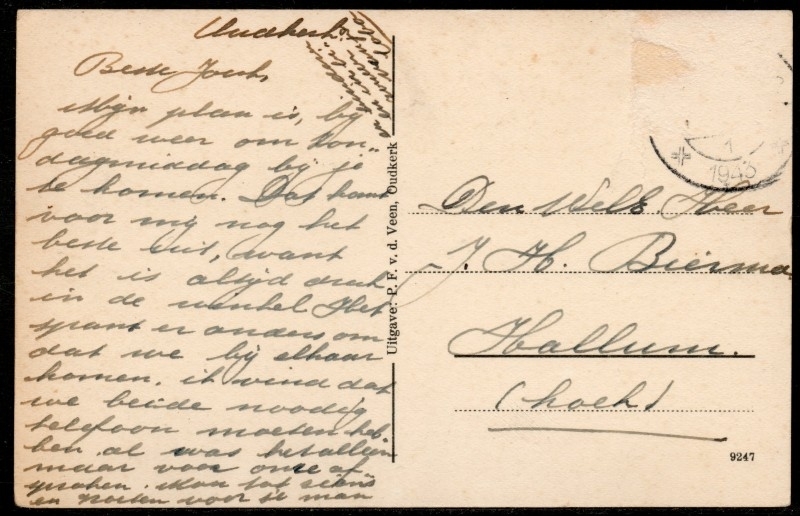 Oudkerk
Beste Joech,
Mijn plan is, bij
goed weer om Zon-
dagmiddag bij je
te komen. Dat komt
voor mij nog het
beste uit, want
het is altijd druk
in de winkel Het
spant er anders om
dat we bij elkaar
komen. ik vind dat
we beide noodig
telefoon moeten heb
ben. al was het alleen
maar voor onze af
spraken. Man tot ziens
en groeten voor je man
Uitgave: P. F. v. d. Veen, Oudkerk
1
1943
Den Weld. Heer
J. H. Bierma
Hallum.
(hoek)
9247